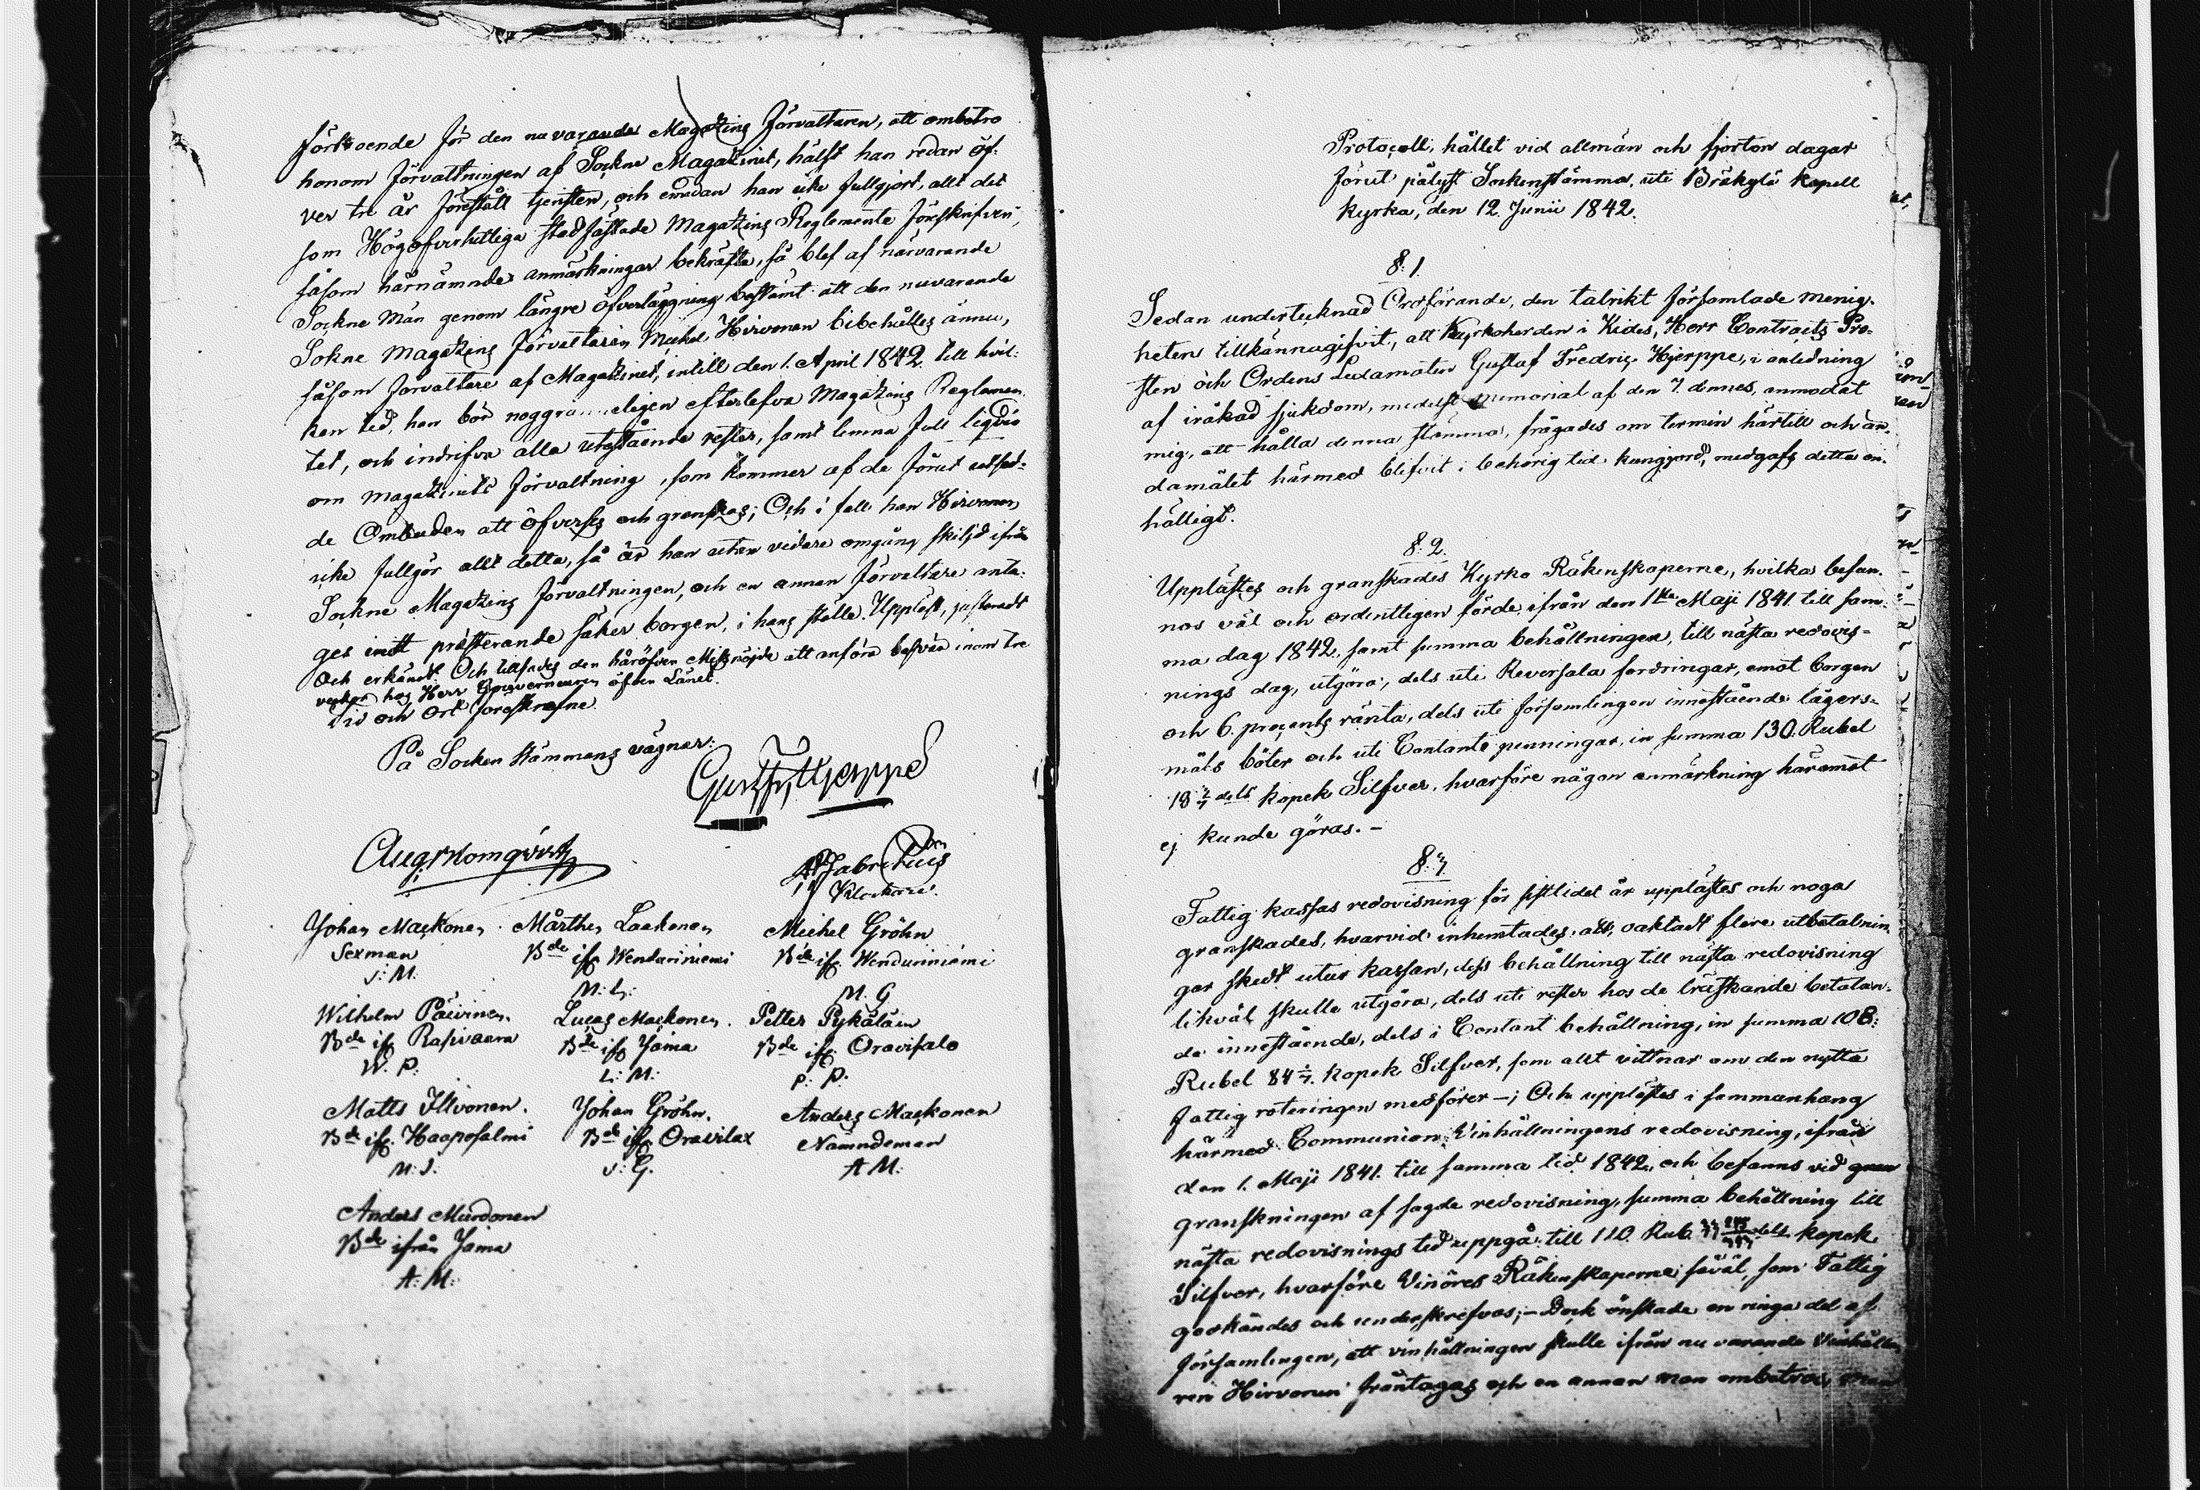 förtroende för den nuvarande Magatzins Förvaltaren, att ombetro
honom Förvaltningen af Sockne Magatzinet, hälst han redan öf-
ver tre år förestått tjensten, och emedan han icke fullgjort, allt det
som Högöfverhetliga stadfästade Magatzins Reglemente föreskrifver,
såsom härnämnde anmärkningar bekräfta, så blef af närvarande
Sockne Män genom längre öfverläggning bestämt att den nuvarande
Sokne Magatzins Förvaltaren Mickel Hirvonen bibehålles ännu,
såsom förvaltare af Magatzinet, intill den 1. April 1842. till hvil-
ken tid, han bör noggranneligen efterlefva Magatzins Reglemen
tet, och indrifva alla utestående rester, samt lemna full liqvid
om Magatzinets förvaltning, som kommer af de förut utsed-
de Ombuden att öfverses och granskas; Och i fall han Hirvonen
icke fullgör allt detta, så är han utan vidare omgång skiljd ifrån
Sockne Magatzins förvaltningen, och en annan förvaltare anta-
ges emot presterande säker borgen, i hans ställe. Uppläst, justeradt
och erkändt. Och tillsades den häröfver Missnöjde att anföra besvär inom tre
veckor hos Herr Gouverneuren öfver Länet.
Tid och Ort föreskrefne
På Socken Stämmans vägnar:
Gust. Fr. Hjerppe
Aug. Blomqvist
Fabritius
Klockare.
Johan Mackonen Mårthen Laakonen Michel Gröhn
Sexman Bde ifr Wendariniemi Bde ifr. Wenduriniemi
J: M. M: L: M. G
Wilhelm Päivinen. Lucas Mackonen. Petter Pykäläin
Bde ifr Rasivaara Bde ifr Jama Bde ifr Oravisalo
W. P: L: M: P: P:
Matts Ilvonen. Johan Gröhn. Anders Mackonen
Bde ifr. Haaposalmi Bde ifr Oravilax Nämndeman
M. I. J: G. A M:
Anders Murdonen
Bde ifrån Jama
A: M:
Protocoll, hållet vid allmän och fjorton dagar
förut pålyst Sockenstämma, uti Bräkylä Kapell
Kyrka, den 12 Junii 1842.
§: 1.
Sedan undertecknad Ordförande, den talrikt församlade menig-
heten tillkännagifvit, att Kyrkoherden i Kides, Herr Contracts Pro-
sten och Ordens Ledamoten Gustaf Fredric Hjerppe, i anledning
af iråkad sjukdom, medelst memorial af den 7 dennes, anmodat
mig, att hålla denna stämma, frågades om termin härtill och än-
damålet härmed blifvit i behörig tid kungjord, medgafs detta en-
hälligt.
§: 2.
Upplästes och granskades Kyrko Räkenskaperne, hvilka befun-
nos väl och ordentligen förde ifrån den 1sta Maji 1841 till sam-
ma dag 1842, samt summa behållningen, till nästa redovis-
nings dag, utgöra, dels uti Reversala fordringar, emot borgen
och 6. procents ränta, dels uti församlingen innestående lägers-
måls böter och uti Contante penningar, in summa 130. Rubel
18 2/7 dels kopek Silfver, hvarföre någon anmärkning häremot
ej kunde göras. –
§: 3
Fattig kassas redovisning för sistlidet år upplästes och noga
granskades, hvarvid inhemtades, att, oaktadt flere utbetalnin
gar skedt utur kassan, dess behållning till nästa redovisning
likväl skulle utgöra, dels uti rester hos de bräskande betalan-
de innestående, dels i Contant behållning, in summa 108:
Rubel 84 2/7. kopek Silfver, som allt vittnar om den nytta
fattig roteringen medförer –; Och upplästes i sammanhang
härmed Communion Vinhållningens redovisning, ifrån
den 1. Maji 1841. till samma tid 1842, och befanns vid
granskningen af sagde redovisning, summa behållning till
nästa redovisnings tid uppgå till 110. Rub. dels kopek
Silfver, hvarföre Vinöres Räkenskaperne såväl, som Fattig
godkändes och underskrefvos; – Dock önskade en ringa del af
församlingen, att vinhållningen skulle ifrån nu varande Vinhålla
ren Hirvonen fråntagas och en annan man ombetros, men